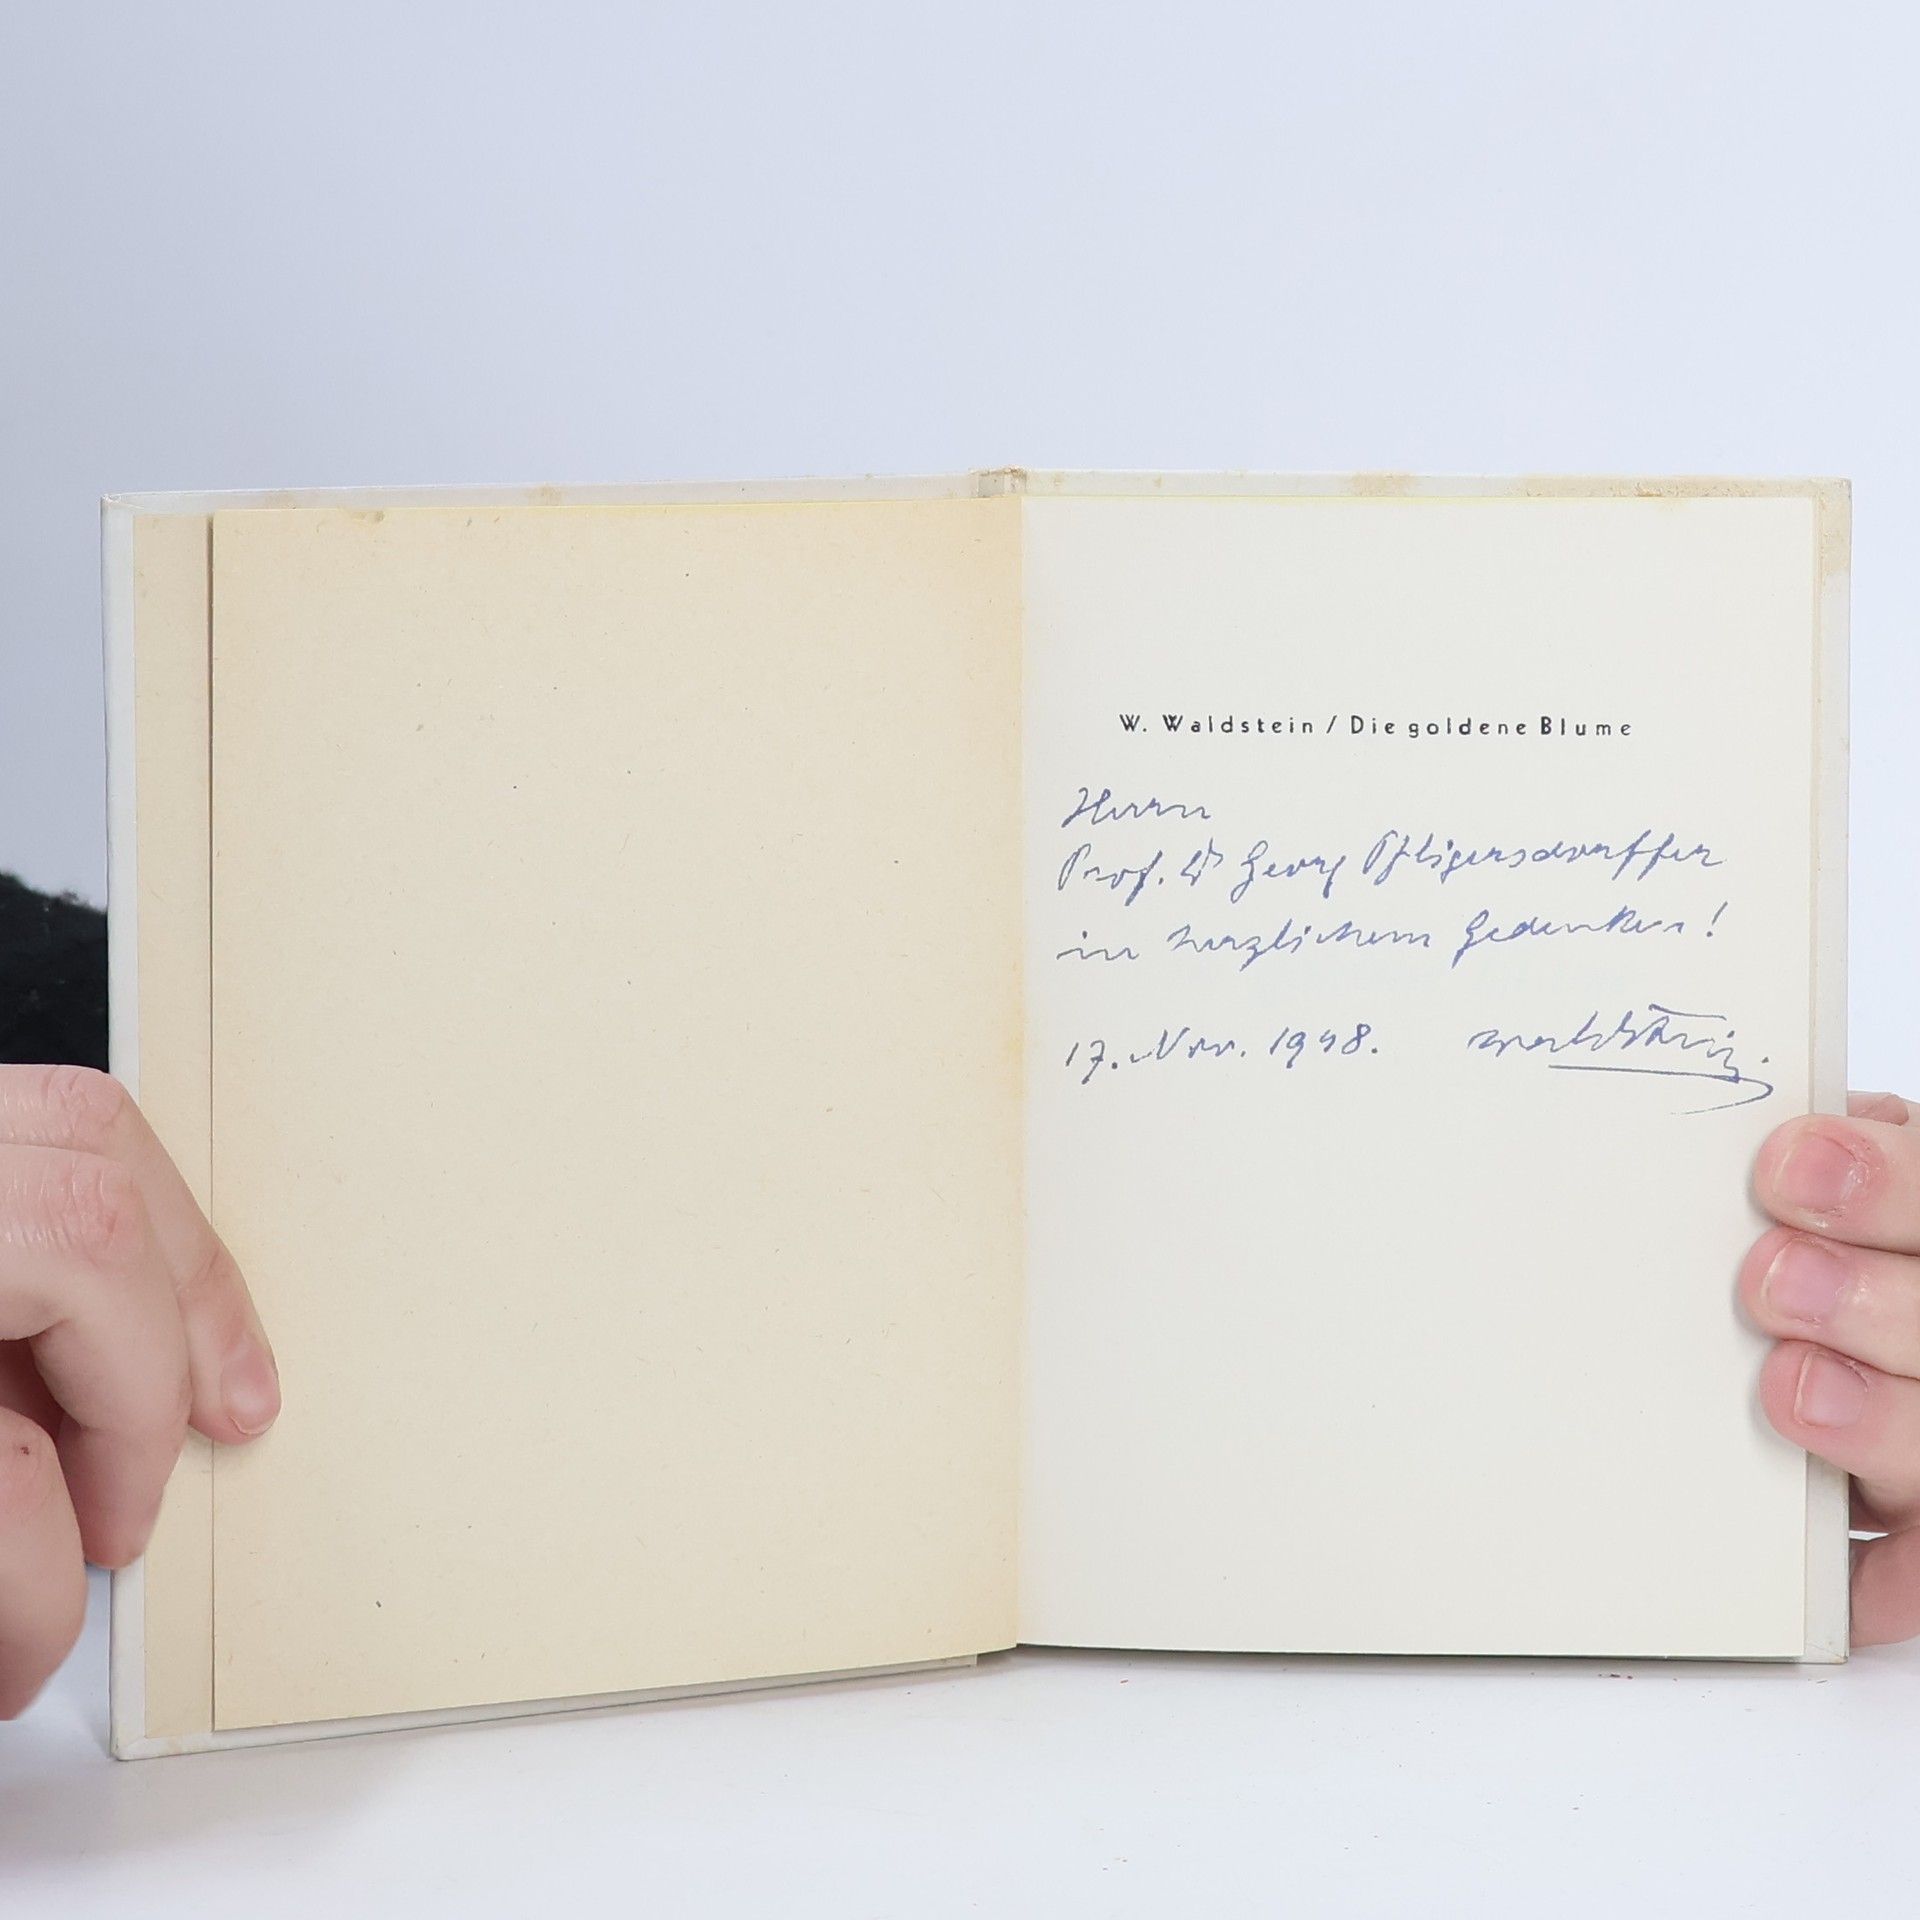 W. Waldstein / Die goldene Blume
Herrn
Prof. Dr Georg Pfligersdorffer
in herzlichem Gedenken!
17. Nov. 1948. Waldstein.